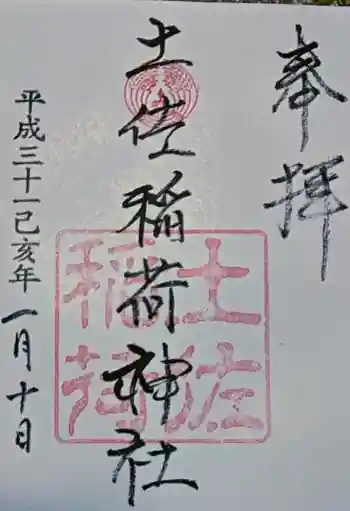 奉拝
土佐稲荷神社
平成三十一己亥年一月十日
土佐
稲荷